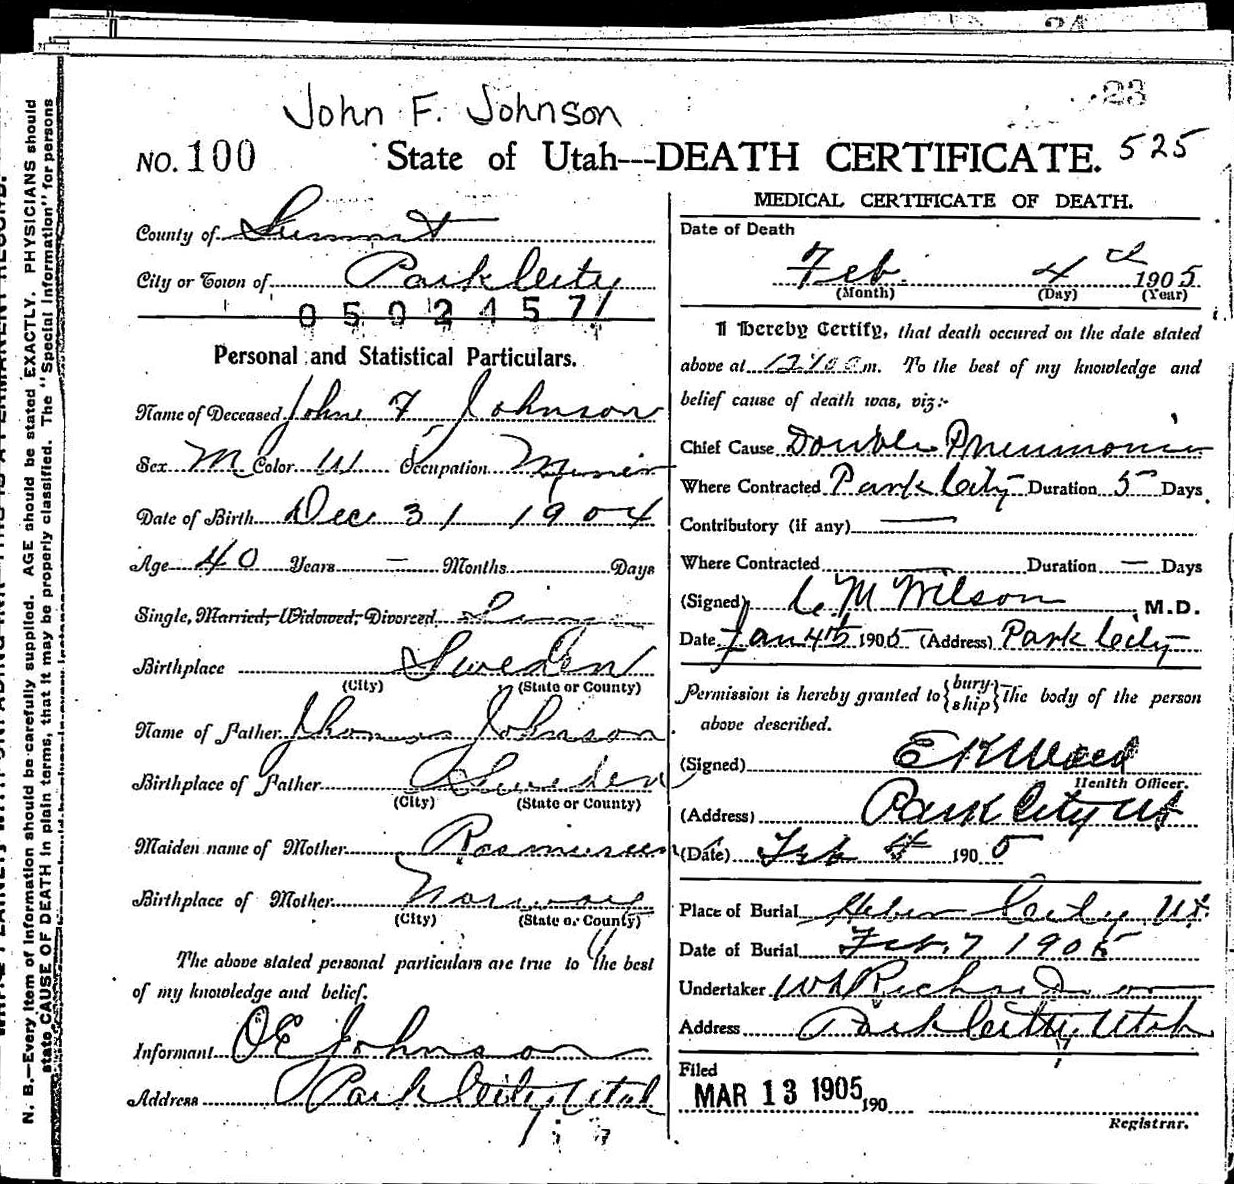 23
John F. Johnson
NO. 100 State of Utah---DEATH CERTIFICATE. 525
County of Summit
City or Town of Park City
0502457
Personal and Statistical Particulars.
Name of Deceased John F Johnson
Sex M Color W Occupation Miner
Date of Birth Dec 31 1904
Age 40 Years — Months Days
Single, Married, Widowed, Divorced
Birthplace Sweden
(City) (State or County)
Name of Father Thomas Johnson
Birthplace of Father Sweden
(City) (State or County)
Maiden name of Mother Rasmussen
Birthplace of Mother Norway
(City) (State or County)
The above stated personal particulars are true to the best
of my knowledge and belief.
Informant OE Johnson
Address Park City Utah
MEDICAL CERTIFICATE OF DEATH.
Date of Death
Feb. 4th 1905
(Month) (Day) (Year)
I Hereby Certify, that death occured on the date stated
above at m. To the best of my knowledge and
belief cause of death was, viz:-
Chief Cause Double Pneumonia
Where Contracted Park City Duration 5 Days
Contributory (if any) —
Where Contracted Duration — Days
(Signed) M Wilson M.D.
Date Jan 4th 1905 (Address) Park City
Permission is hereby granted to {bury-ship} the body of the person
above described.
(Signed) E K Ward
Health Officer.
(Address) Park City Ut
(Date) Feb 4 1905
Place of Burial Heber City, Ut.
Date of Burial Feb. 7 1905
Undertaker Richardson
Address Park City, Utah
Filed
MAR 13 1905 190
Registrar.
N. B.—Every item of information should be carefully supplied. AGE should be stated EXACTLY. PHYSICIANS should
state CAUSE OF DEATH in plain terms, that it may be properly classified. The "Special Information" for persons